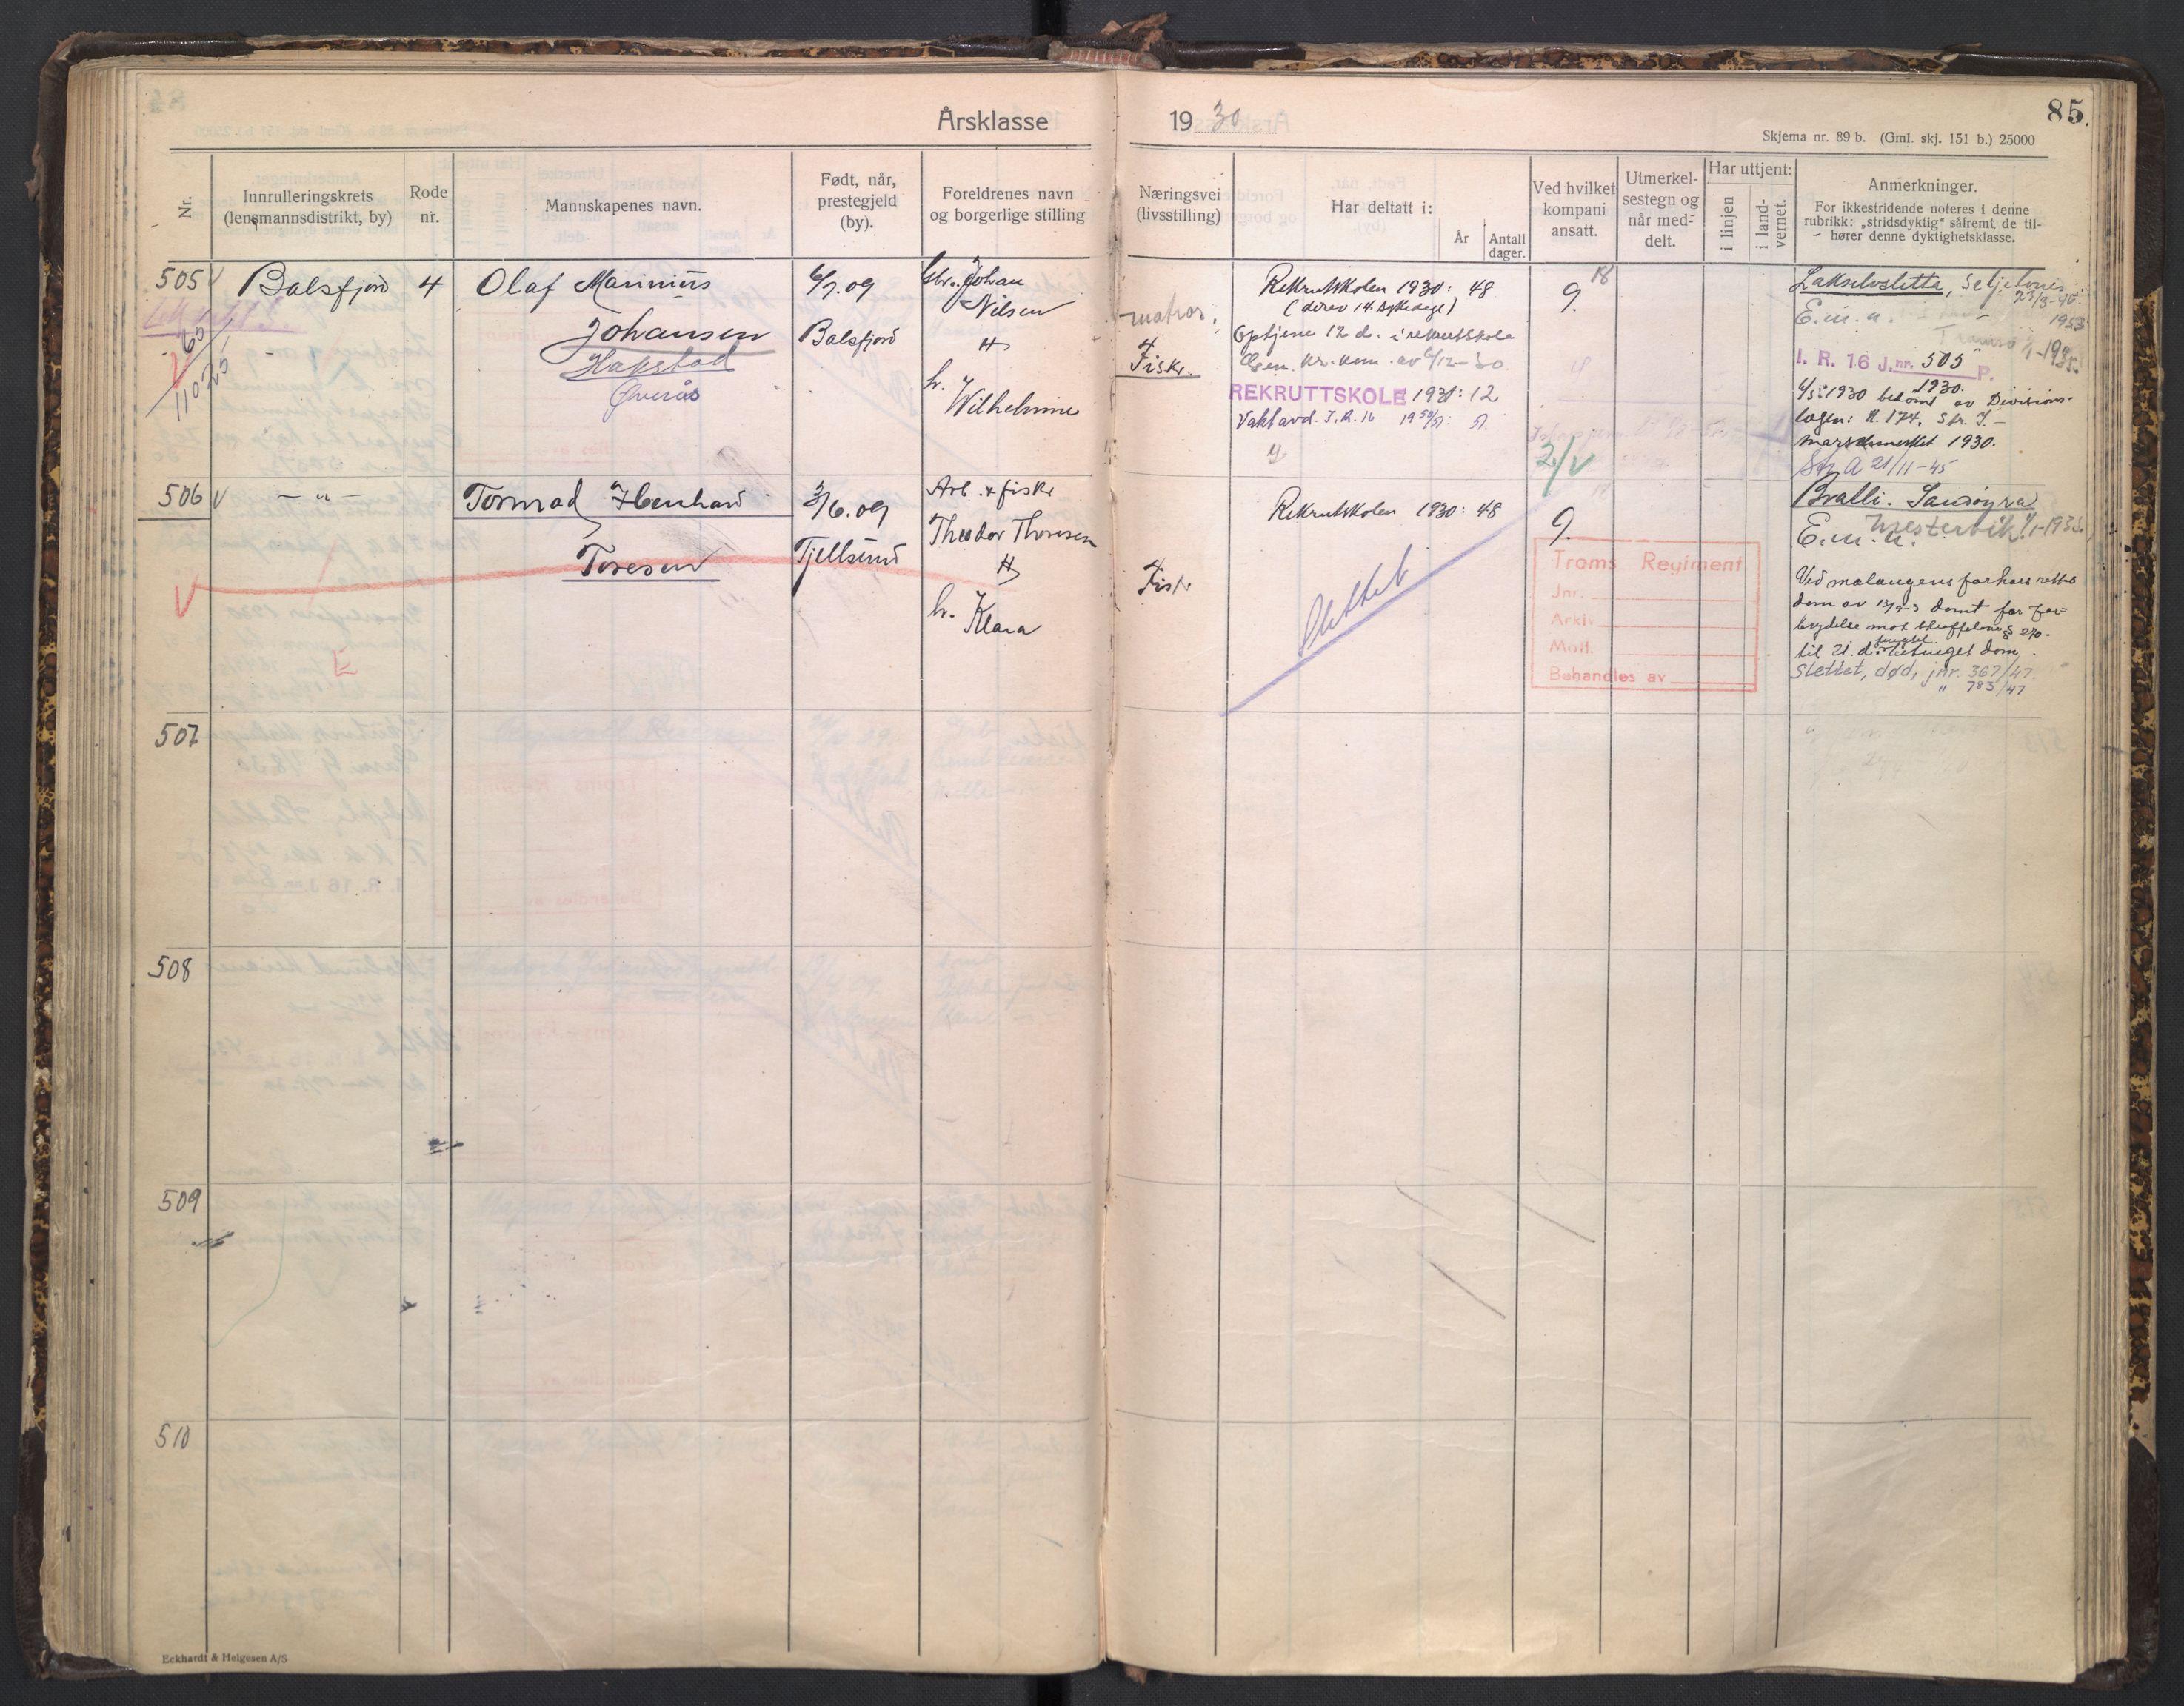 Årsklasse 1930
85.
Skjema nr. 89 b. (Gml. skj. 151 b.) 25000
Nr.
Innrulleringskrets
(lensmannsdistrikt, by)
Rode
nr.
Mannskapenes navn.
Født, når,
prestegjeld
(by).
Foreldrenes navn
og borgerlige stilling
Næringsvei
(livsstilling)
Har deltatt i:
År
Antall
dager.
Ved hvilket
kompani
ansatt.
Utmerkel-
sestegn og
når med-
delt.
Har uttjent:
i linjen
i land-
vernet.
Anmerkninger.
For ikkestridende noteres i denne
rubrikk: „stridsdyktig“ såfremt de til-
hører denne dyktighetsklasse.
505 V
60
11025
Balsfjord
4
Olaf Marinius
Johansen
Hakstad
Øverås
6/7.09
Balsfjord
Gbr. Johan
Nilsen
H
h.
Wilhelmine
matros.
Fisker.
Rekrutskolen 1930: 48
(derav 14 sykedage)
Optjene 12 d. i rekrutskole
Gen. kr. kom. av 6/12-30
REKRUTTSKOLE 1931: 12
Vaktavd. I.R. 16 1950/51: 51.
9.
18
2/V
Lakselvsletta, Seljelvnes
23/3-40.
E.m.a.
1953
Tromsø 1/1-1935.
I. R. 16 J.nr. 505 P.
1930.
4/5 1930 bekomt av Divisions-
lægen: N. 174. Str. I.-
marsjmerket 1930.
Stz A 21/11-45
506 V
- " -
Tormod Henhard
Toresen
3/6.09
Tjellsund
Arb. & fisker
Theodor Thoresen
H
h. Klara
Fisk
Rekrutskolen 1930: 48
Slettet
9.
Troms Regiment
Jnr.
Arkiv
Mott.
Behandles av
Bralli. Sandøyra
Mestervik 1/1-1935.
E.m.a.
Ved Malangens forhørsretts
dom av 13/9-3 dømt for for=
brydelse mot straffelovens § 270-
til 21. d. fengsel betinget dom.
Slettet, død, jnr. 367/47.
" 783/47
V
E
507
508
509
510
Eckhardt & Helgesen A/S